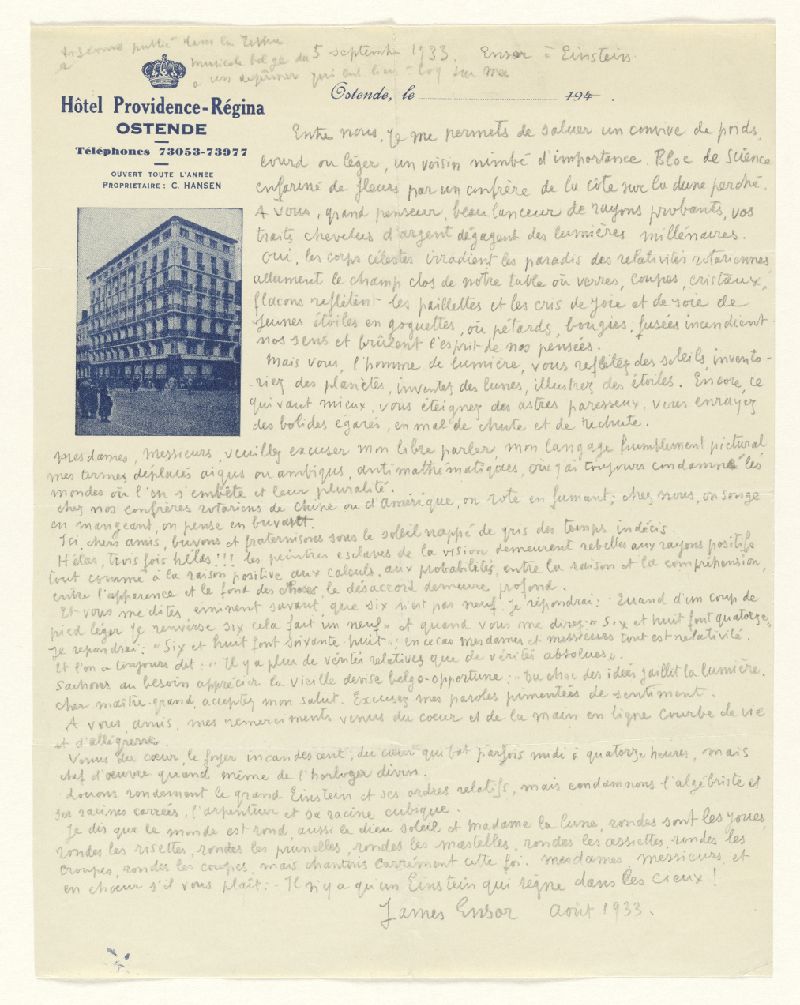 discours publié dans la Revue
musicale belge du 5 septembre 1933. Ensor à Einstein.
qui eut lieu - Coq sur mer
Hôtel Providence-Régina
OSTENDE
Téléphones 73053-73977
OUVERT TOUTE L'ANNÉE
PROPRIETAIRE : C. HANSEN
Ostende, le 194
Entre nous, Je me permets de saluer un convive de poids,
lourd ou léger, un voisin nimbé d'importance. Bloc de Science
enfariné de fleurs par un confrère de la côte sur la dune perché.
A Vous, grand penseur, beau lanceur de rayons probants, vos
traits chevelus d'argent dégagent des lumières millénaires.
Oui, les corps célestes irradient les paradis des relativités rotariennes
allument le champ clos de notre table où verres, coupes, cristaux,
flacons reflètent les paillettes et les cris de joie et de soie de
jeunes étoiles en goguettes, où pétards, bougies, fusées incendient
nos sens et brûlent l'esprit de nos pensées.
Mais vous, l'homme de lumière, vous reflétez des soleils, invento-
riez des planètes, inventez des lunes, illustrez des étoiles. Encore, ce
qui vaut mieux, vous éteignez des astres paresseux, vous enrayez
des bolides égarés, en mal de chute et de rechute.
Mesdames, Messieurs, veuillez excuser mon libre parler, mon langage humblement pictural
mes termes déplacés aigus ou ambigus, antimathématiques, où j'ai toujours condamné les
mondes où l'on s'embête et leur pluralité.
Chez nos confrères rotariens de Chine ou d'Amérique, on rote en fumant ; chez nous, on songe
en mangeant, on pense en buvant.
Ici, chers amis, buvons et fraternisons sous le soleil nappé de gris des temps indécis.
Hélas, trois fois hélas !!! les peintres esclaves de la vision demeurent rebelles aux rayons positifs
tout comme à la raison positive aux calculs, aux probabilités, entre la raison et la compréhension,
entre l'apparence et le fond des choses le désaccord demeure profond.
Et vous me dites, éminent savant, que six n'est pas neuf. Je répondrai : Quand d'un coup de
pied léger je renverse six cela fait un neuf » et quand vous me direz « Six et huit font quatorze,
Je repondrai : « Six et huit font soixante huit : en cecas mesdames et messieurs tout est relativité.
Et l'on a toujours dit : « Il y a plus de vérités relatives que de vérités absolues ».
Sachons au besoin apprécier la vieille devise belgo-opportune : « Du choc des idées jaillit la lumière.
Cher maître-grand, acceptez mon salut. Excusez mes paroles pimentées de sentiment.
A vous amis, mes remerciments venus du coeur et de la main en ligne courbe de vie
et d'allégresse.
Venus du cœur, le foyer incandescent, du cœur qui bat parfois midi à quatorze heures, mais
chef d'œuvre quand même de l'horloger divin.
Louons rondement le grand Einstein et ses ordres relatifs, mais condamnons l'algébriste et
ses racines carrées, l'arpenteur et sa racine cubique.
Je dis que le monde est rond, aussi le dieu soleil et madame la lune, rondes sont les joues,
rondes les risettes, rondes les prunelles, rondes les mastelles, rondes les assiettes, rondes les
croupes, rondes les coupes, mais chantons carrément cette foi. Mesdames, messieurs, et
en chœur s'il vous plaît : - Il n'y a qu'un Einstein qui règne dans les Cieux !
James Ensor Août 1933.